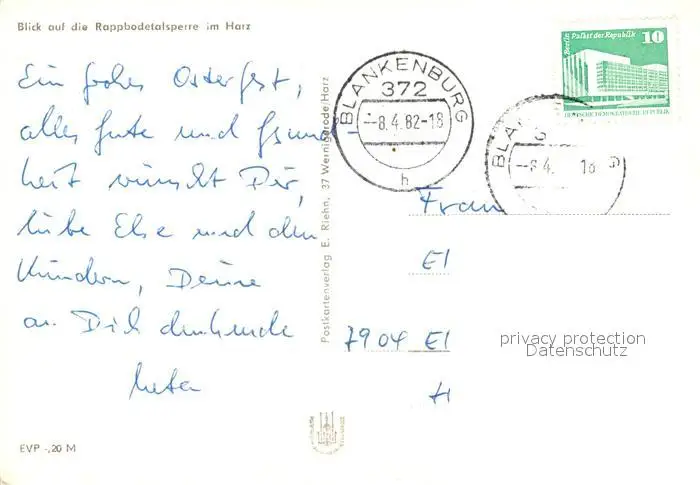 Blick auf die Rappbodetalsperre im Harz
Ein frohes Osterfest,
alles Gute und Gesund
heit wünscht Dir,
liebe Else und den
Kindern, Deine
an Dich denkende
Meta
EVP -,20 M
Postkartenverlag E. Riehn, 37 Wernigerode/Harz
BLANKENBURG
372
-8.4.82-18
h
Berlin Palast der Republik
10
DEUTSCHE DEMOKRATISCHE REPUBLIK
BLAN G
-8.4. 18
Frau
El
7904 El
H
privacy protection
Datenschutz